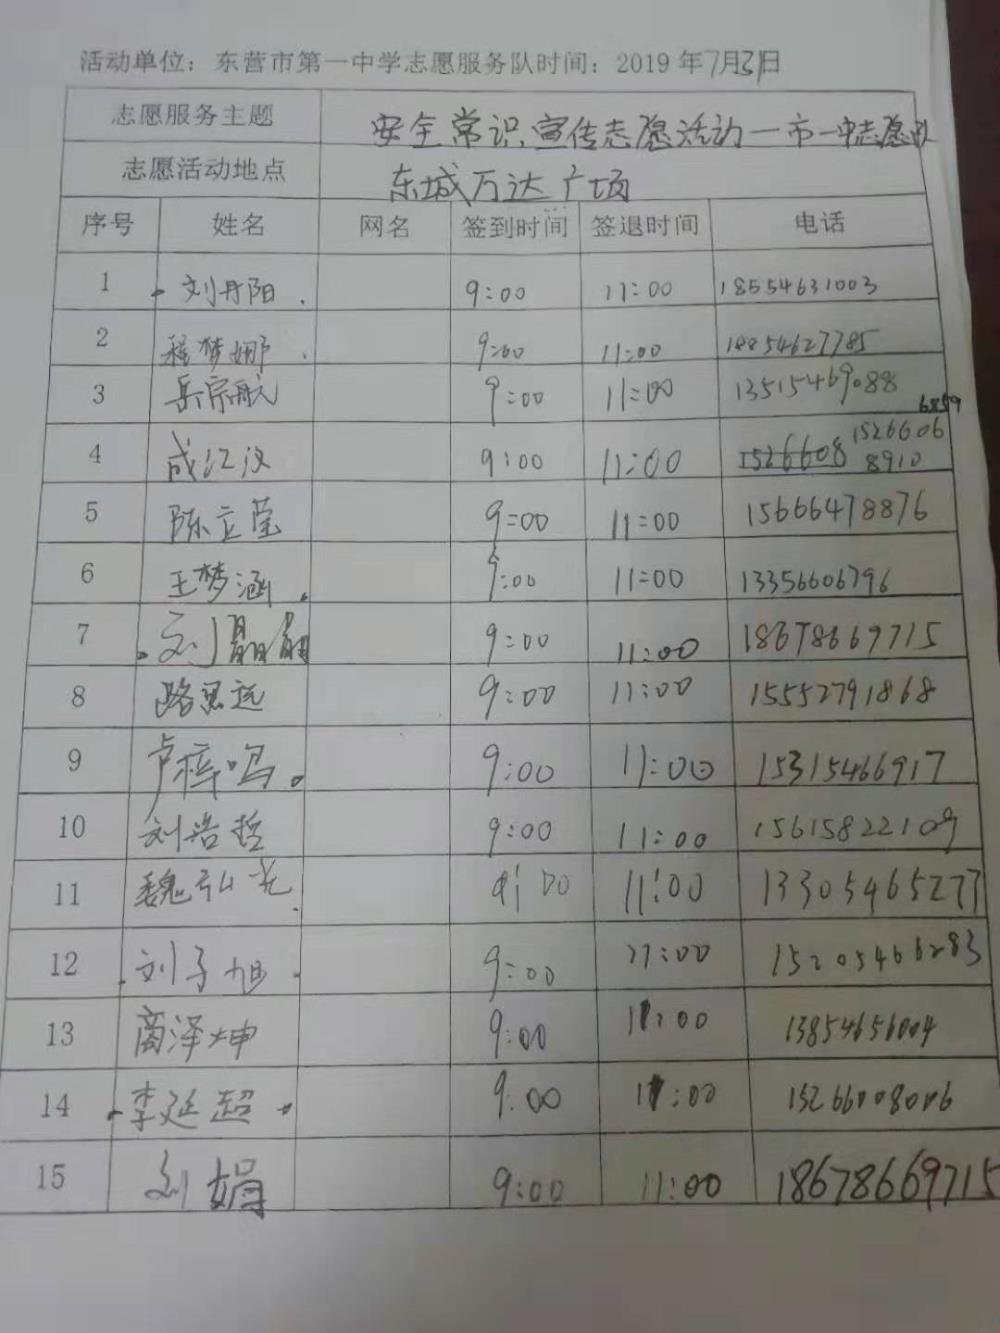 活动单位：东营市第一中学志愿服务队时间：2019 年7月31日
志愿服务主题 安全常识宣传志愿活动一市一中志愿队
志愿活动地点 东城万达广场
序号 姓名 网名 签到时间 签退时间 电话
1 刘丹阳 9:00 11:00 18554631003
2 程梦娜 9:00 11:00 18854627785
3 岳宗航 9:00 11:00 13515469088
6859
4 成江汉 9:00 11:00 1526608 1526606
8910
5 陈立莹 9:00 11:00 15666478876
6 王梦涵 9:00 11:00 13356606796
7 刘 9:00 11:00 18678669715
8 路思远 9:00 11:00 15552791868
9 卢梓鸣 9:00 11:00 15315466917
10 刘浩哲 9:00 11:00 15615822109
11 魏弘光 9:00 11:00 13305465277
12 刘子旭 9:00 11:00 15205466283
13 商泽坤 9:00 11:00 13854656004
14 李延超 9:00 11:00 15266008006
15 刘娟 9:00 11:00 18678669715